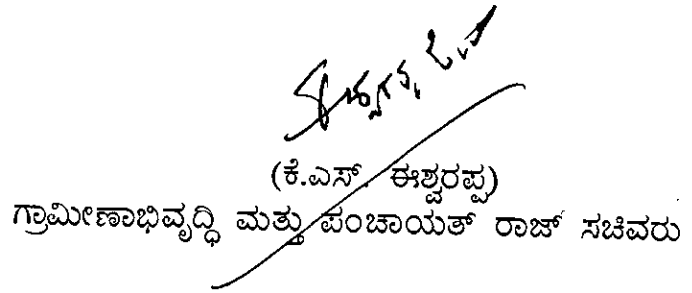 (ಕೆ.ಎಸ್. ಈಶ್ವರಪ್ಪ)
ಗ್ರಾಮೀಣಾಭಿವೃದ್ಧಿ ಮತ್ತು ಪಂಚಾಯತ್ ರಾಜ್ ಸಚಿವರು